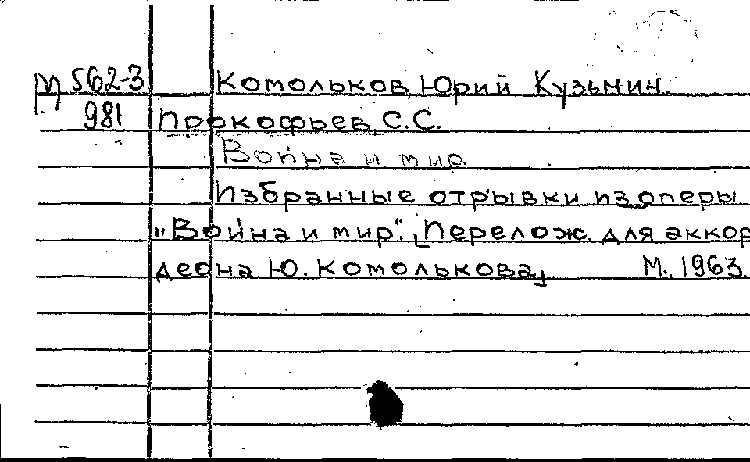 М 562-3 Котольков Юрий Кузьмич.
981 Прокофьев С.С.
Война и мир.
Избранные отрывки из оперы
„Война и мир". [Перелож. для аккор
деона Ю. Котолькова] М. 1963.